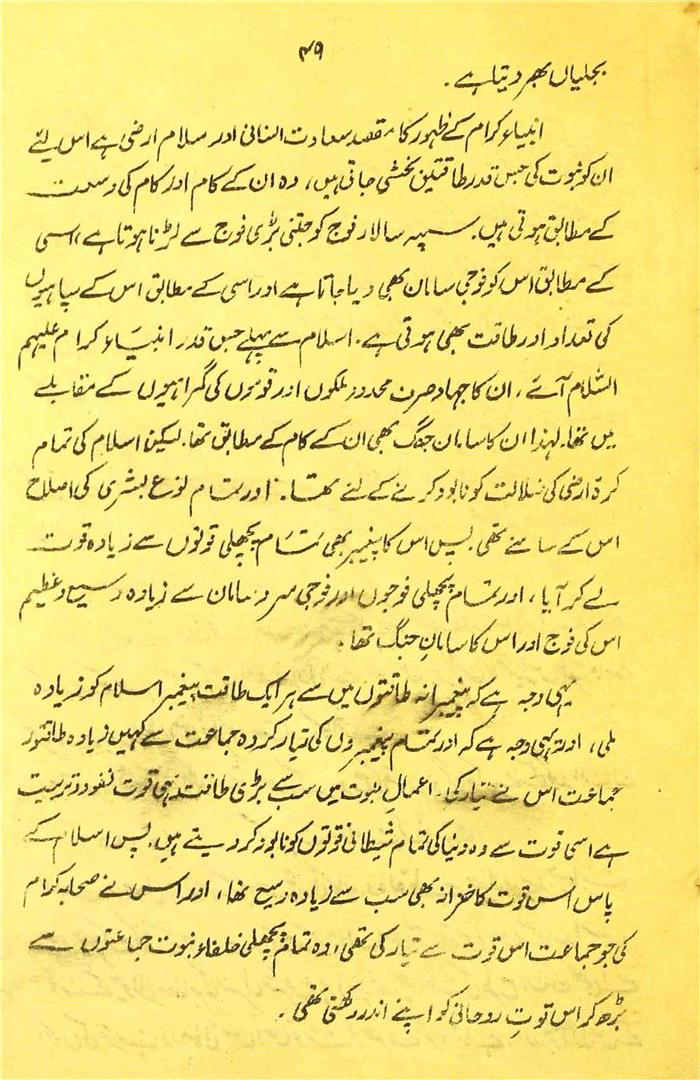 ۴۹
بجلیاں بھر دیتا ہے۔
انبیاء کرام کے ظہور کا مقصد سعادت انسانی اور سلام ارضی ہے اس لئے
ان کو نبوت کی جس قدر طاقتیں بخشی جاتی ہیں، وہ ان کے کام اور کام کی وسعت
کے مطابق ہوتی ہیں۔ سپہ سالار فوج کو جتنی بڑی فوج سے لڑنا ہوتا ہے، اسی
کے مطابق اس کو فوجی سامان بھی دیا جاتا ہے اور اسی کے مطابق اس کے سپاہیوں
کی تعداد اور طاقت بھی ہوتی ہے۔ اسلام سے پہلے جس قدر انبیاء کرام علیہم
السلام آئے، ان کا جہاد صرف محدود ملکوں اور قوموں کی گمراہیوں کے مقابلے
میں تھا۔ لہٰذا ان کا سامان جنگ بھی ان کے کام کے مطابق تھا۔ لیکن اسلام کی تمام
کرۂ ارضی کی ضلالت کو نابود کرنے کے لئے تھا۔ اور تمام نوع بشری کی اصلاح
اس کے سامنے تھی۔ پس اس کا پیغمبر بھی تمام پچھلی قوتوں سے زیادہ قوت
لے کر آیا، اور تمام پچھلی فوجوں اور فوجی سر و سامان سے زیادہ وسیع و عظیم
اس کی فوج اور اس کا سامانِ جنگ تھا۔
یہی وجہ ہے کہ پیغمبرانہ طاقتوں میں سے ہر ایک طاقت پیغمبر اسلام کو زیادہ
ملی، اور یہی وجہ ہے کہ اور تمام پیغمبروں کی تیار کردہ جماعت سے کہیں زیادہ طاقتور
جماعت اس نے تیار کی۔ اعمالِ نبوت میں سب سے بڑی طاقت یہی قوت نفوذ و تربیت
ہے اسی قوت سے وہ دنیا کی تمام شیطانی قوتوں کو نابود کر دیتے ہیں۔ پس اسلام کے
پاس اس قوت کا خزانہ بھی سب سے زیادہ وسیع تھا، اور اس نے صحابہ کرام
کی جو جماعت اس قوت سے تیار کی تھی، وہ تمام پچھلی خلفاء نبوت جماعتوں سے
بڑھ کر اس قوتِ روحانی کو اپنے اندر رکھتی تھی۔